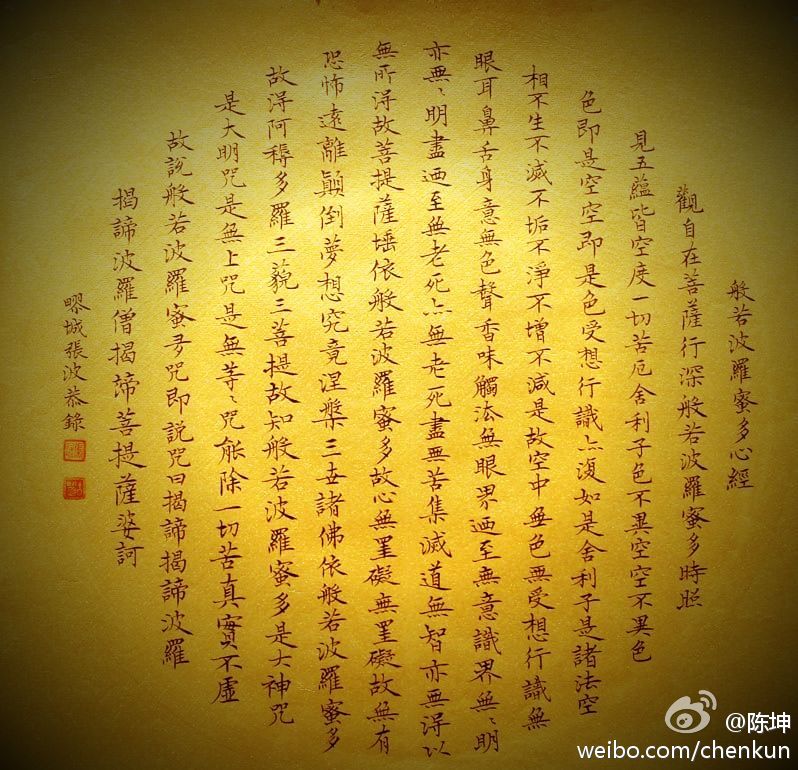 般若波羅蜜多心經
觀自在菩薩行深般若波羅蜜多時照
見五蘊皆空度一切苦厄舍利子色不異空空不異色
色即是空空即是色受想行識亦復如是舍利子是諸法空
相不生不滅不垢不淨不增不減是故空中無色無受想行識無
眼耳鼻舌身意無色聲香味觸法無眼界迺至無意識界無〻明
亦無〻明盡迺至無老死亦無老死盡無苦集滅道無智亦無得以
無所得故菩提薩埵依般若波羅蜜多故心無罣礙無罣礙故無有
恐怖遠離顛倒夢想究竟涅槃三世諸佛依般若波羅蜜多
故得阿耨多羅三藐三菩提故知般若波羅蜜多是大神咒
是大明咒是無上咒是無等〻咒能除一切苦真實不虛
故說般若波羅蜜多咒即說咒曰揭諦揭諦波羅
揭諦波羅僧揭諦菩提薩婆訶
疁城張波恭錄
@陈坤
weibo.com/chenkun